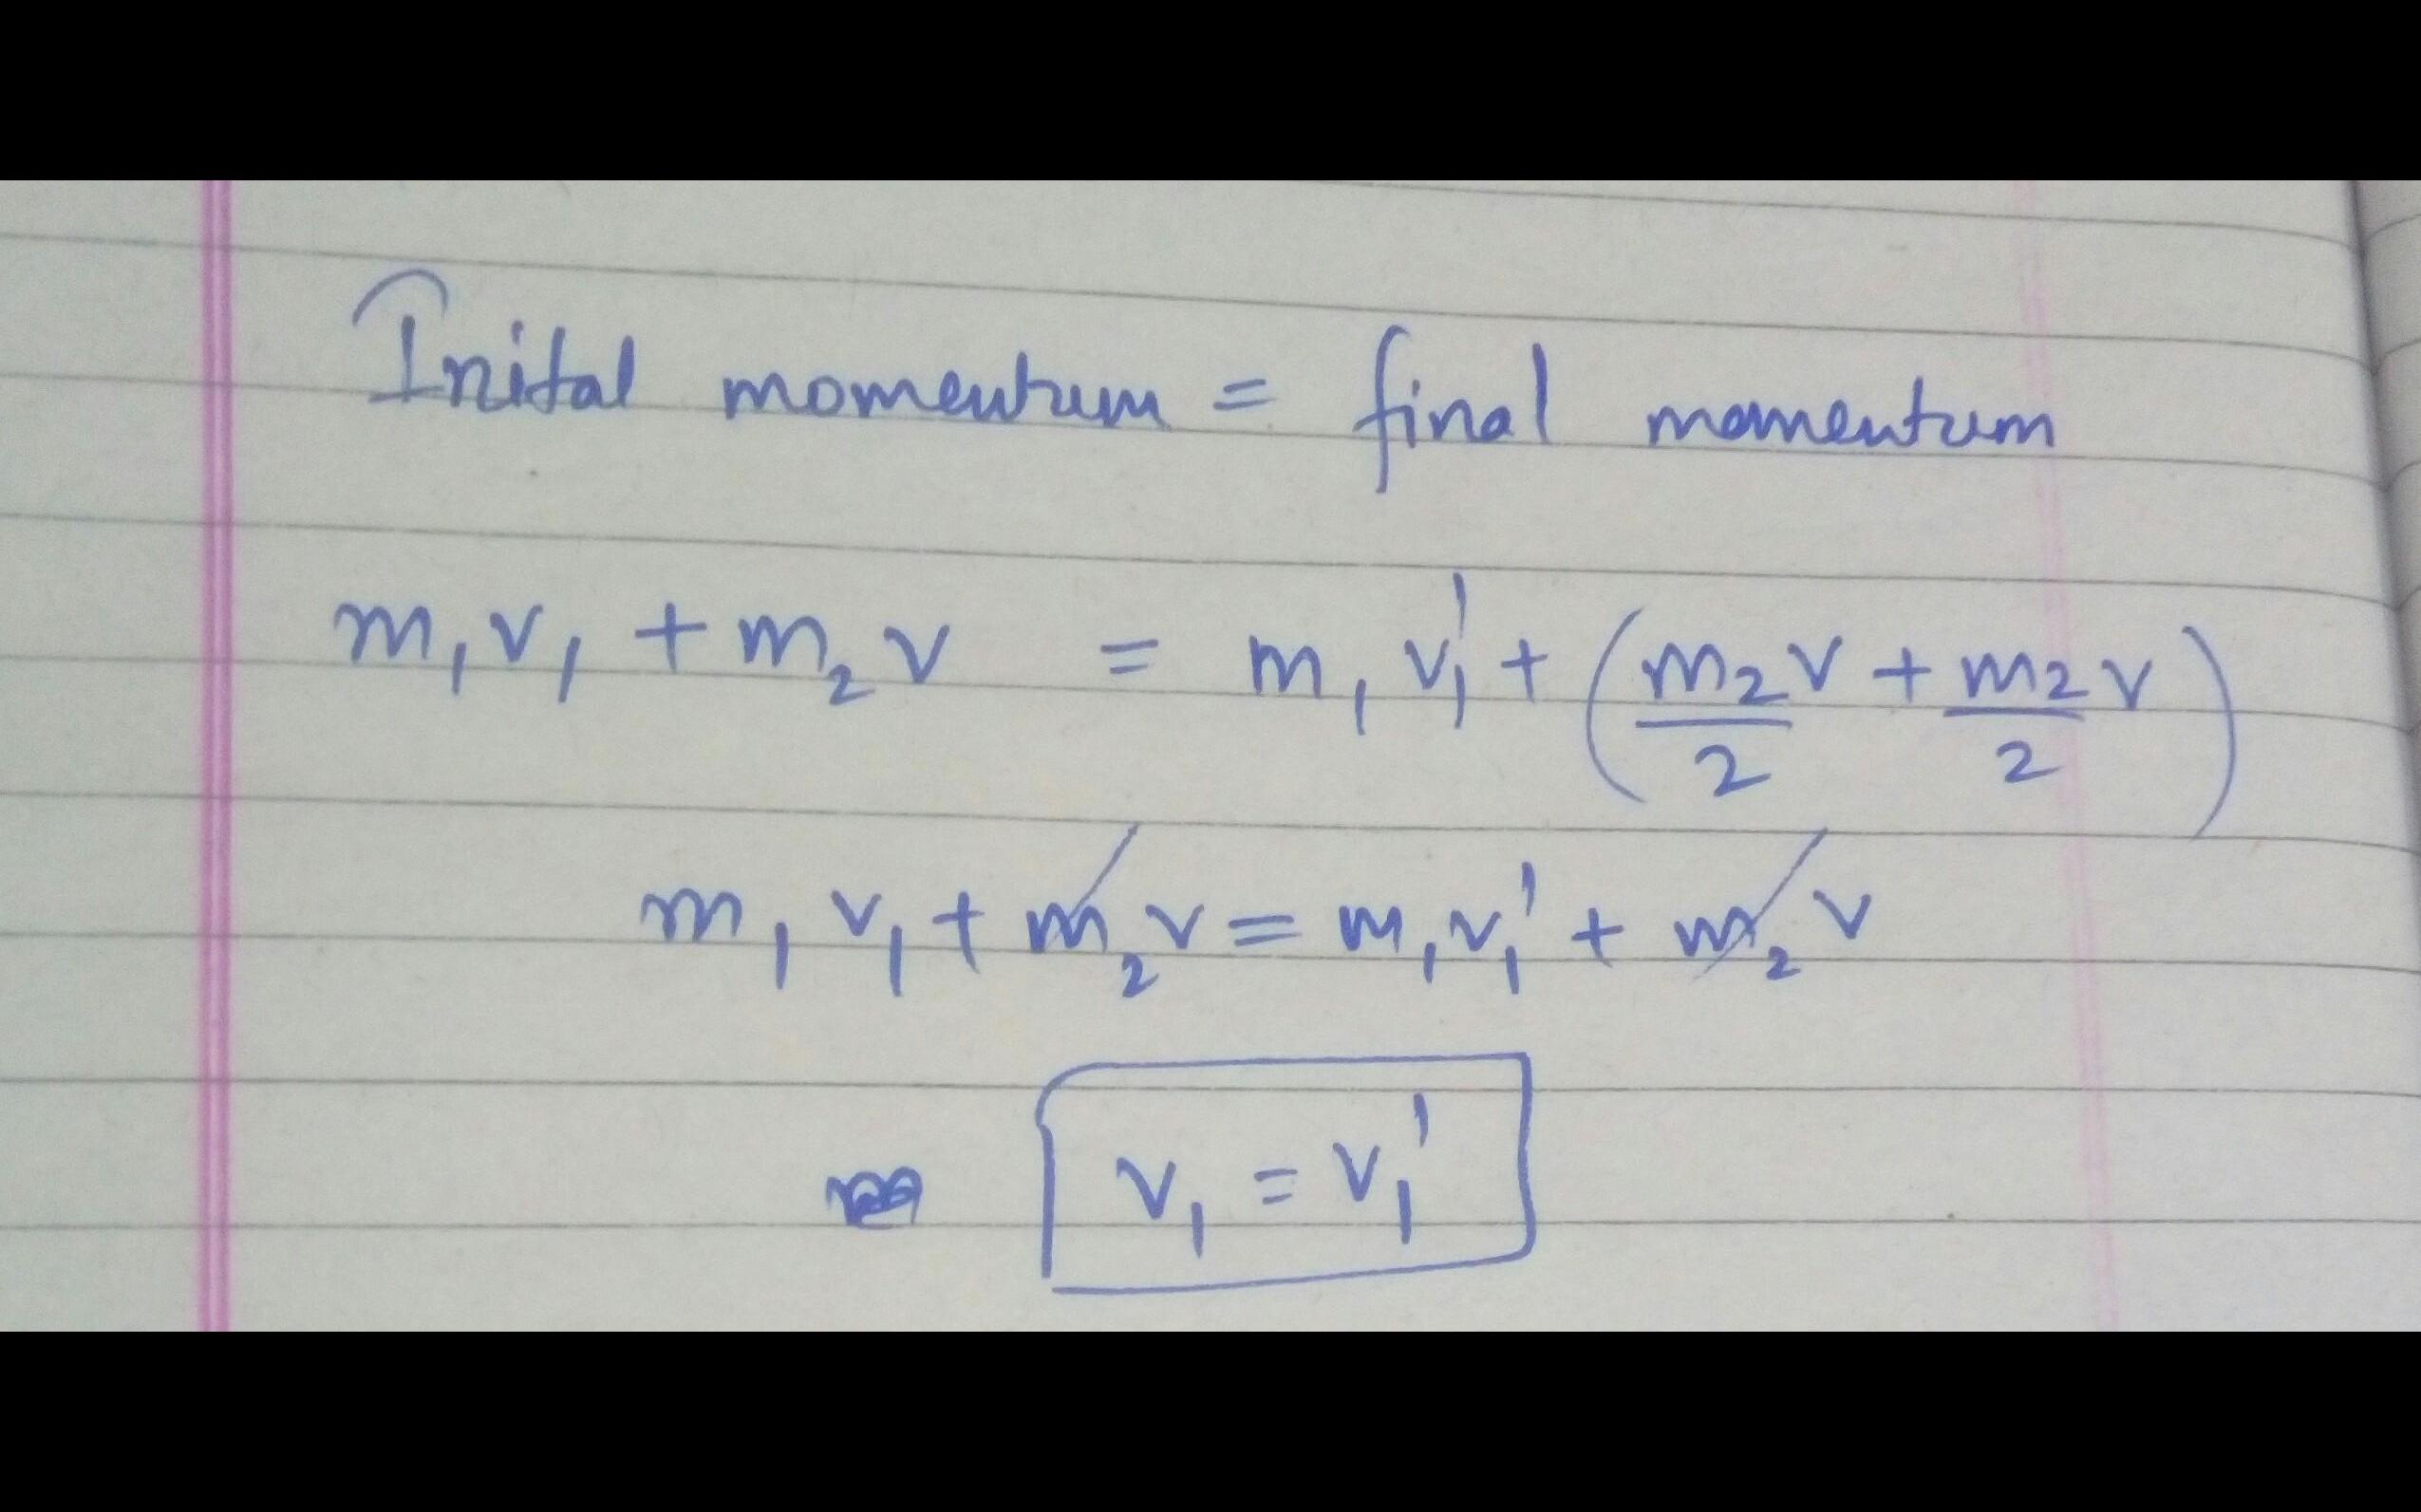 Inital momentum = final momentum
m₁v₁ + m₂v = m₁v₁' + (m₂/2 v + m₂/2 v)
m₁v₁ + m₂v = m₁v₁' + m₂v
v₁ = v₁'